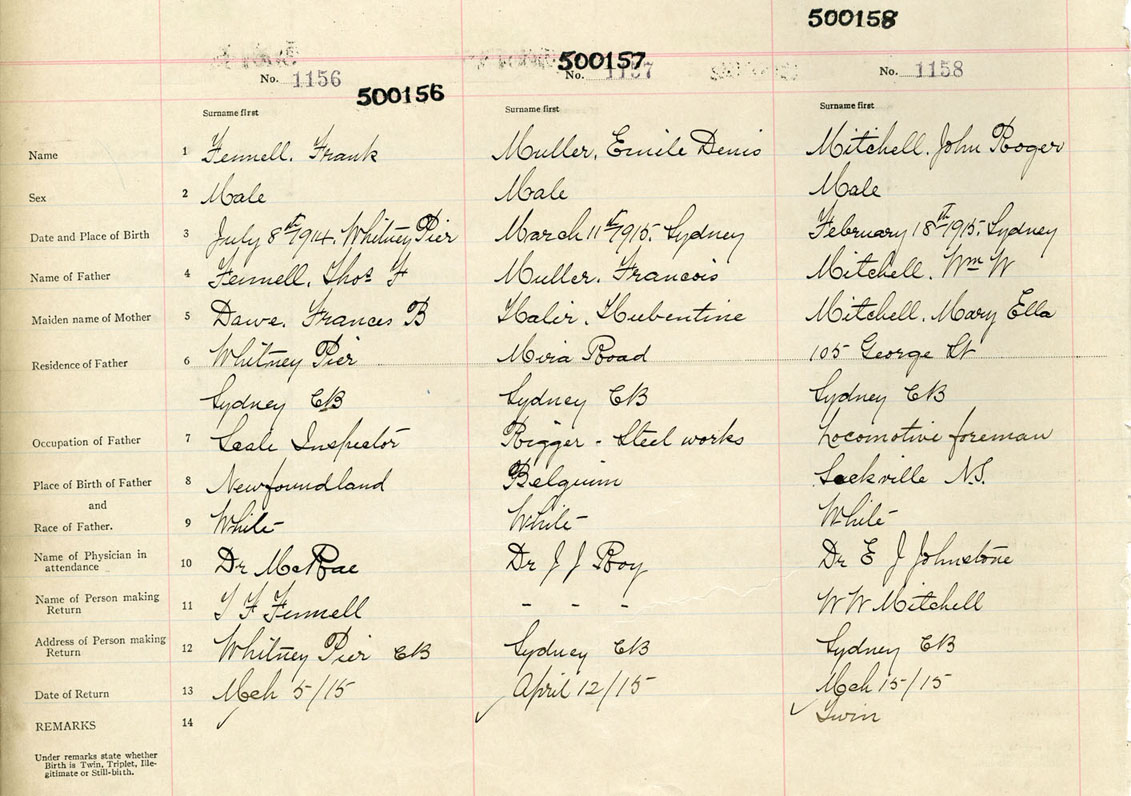 500158
500157
500156
No. 1156
No. 1157
No. 1158
Surname first
Surname first
Surname first
Name 1 Fennell, Frank Muller, Emile Denis Mitchell, John Roger
Sex 2 Male Male Male
Date and Place of Birth 3 July 8th 1914. Whitney Pier March 11th 1915. Sydney February 18TH 1915. Sydney
Name of Father 4 Fennell, Thos F Muller, Francois Mitchell, Wm W
Maiden name of Mother 5 Dawe, Frances B Hubentine Mitchell, Mary Ella
Residence of Father 6 Whitney Pier Mira Road 105 George St
Sydney CB Sydney CB Sydney CB
Occupation of Father 7 Scale Inspector Rigger - Steel works Locomotive foreman
Place of Birth of Father 8 Newfoundland Belguim Sackville N.S.
and
Race of Father. 9 White White White
Name of Physician in
attendance 10 Dr McRae Dr J J Roy Dr E J Johnstone
Name of Person making
Return 11 T F Fennell - - - W W Mitchell
Address of Person making
Return 12 Whitney Pier CB Sydney CB Sydney CB
Date of Return 13 Mch 5/15 April 12/15 Mch 15/15
REMARKS 14 Twin
Under remarks state whether
Birth is Twin, Triplet, Ille-
gitimate or Still-birth.